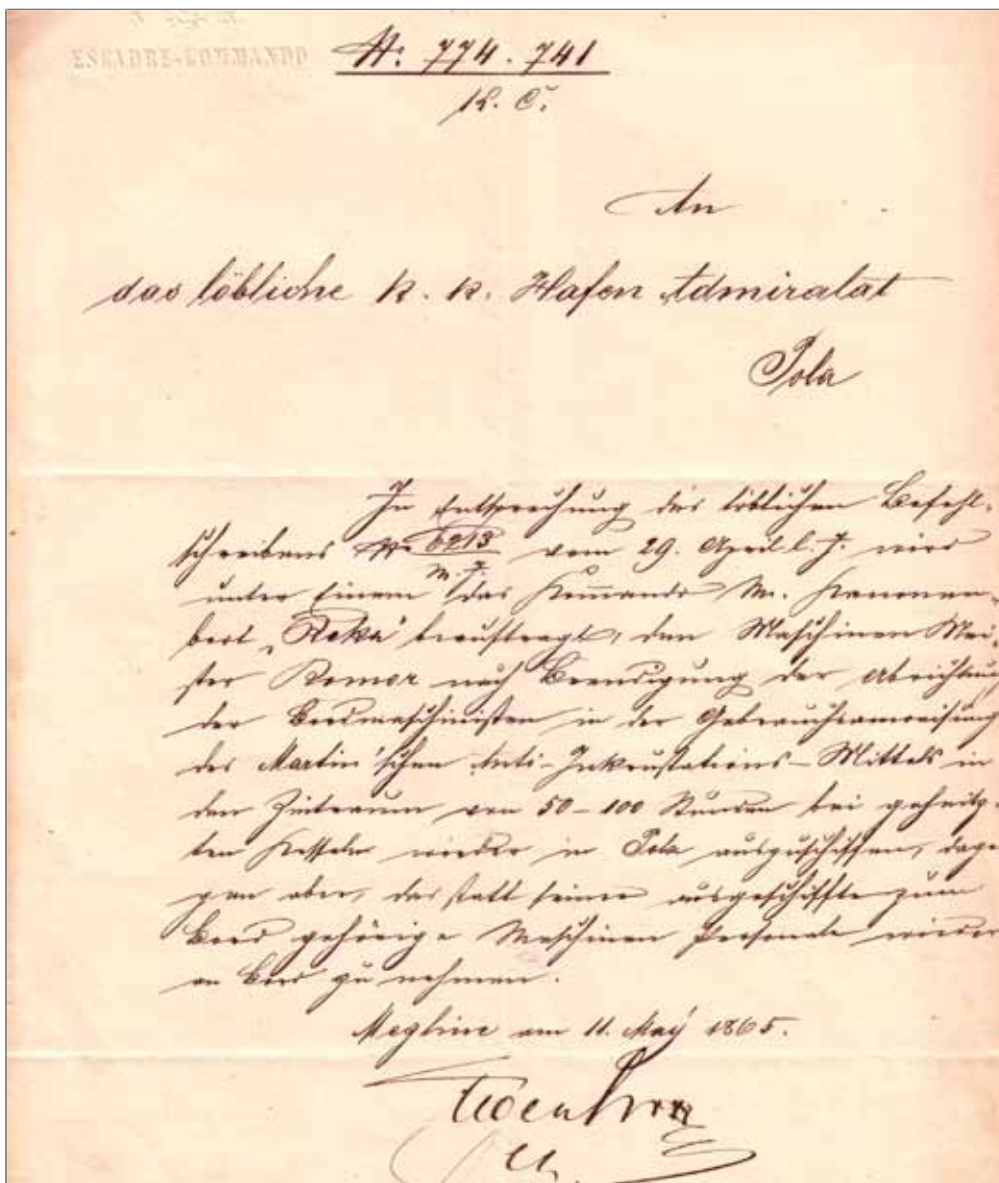 ESKADRE-COMMANDO
N: 774.741
K. C.
An
das löbliche k. k. Hafen Admiralat
Pola
In Entsprechung des löblichen Befehl-
schreibens N: 6213 vom 29. April l. J. wird
M. J.
unter Einem das Kommando M. Kanonen-
boot „Reka“ beauftragt, den Maschinen Mei-
ster Romer nach Beendigung der Abrichtung
der Bordmaschinisten in der Gebrauchsanweisung
des Martin'schen Anti-Inkrustations-Mittels in
den Zeitraum von 50-100 Stunden bei geheitz-
ten Kesseln wieder in Pola auszuschiffen, dage-
gen aber, das statt seiner ausgeschiffte zum
Bord gehörige Maschinen Personale wieder
an Bord zu nehmen.
Megline am 11. May 1865.